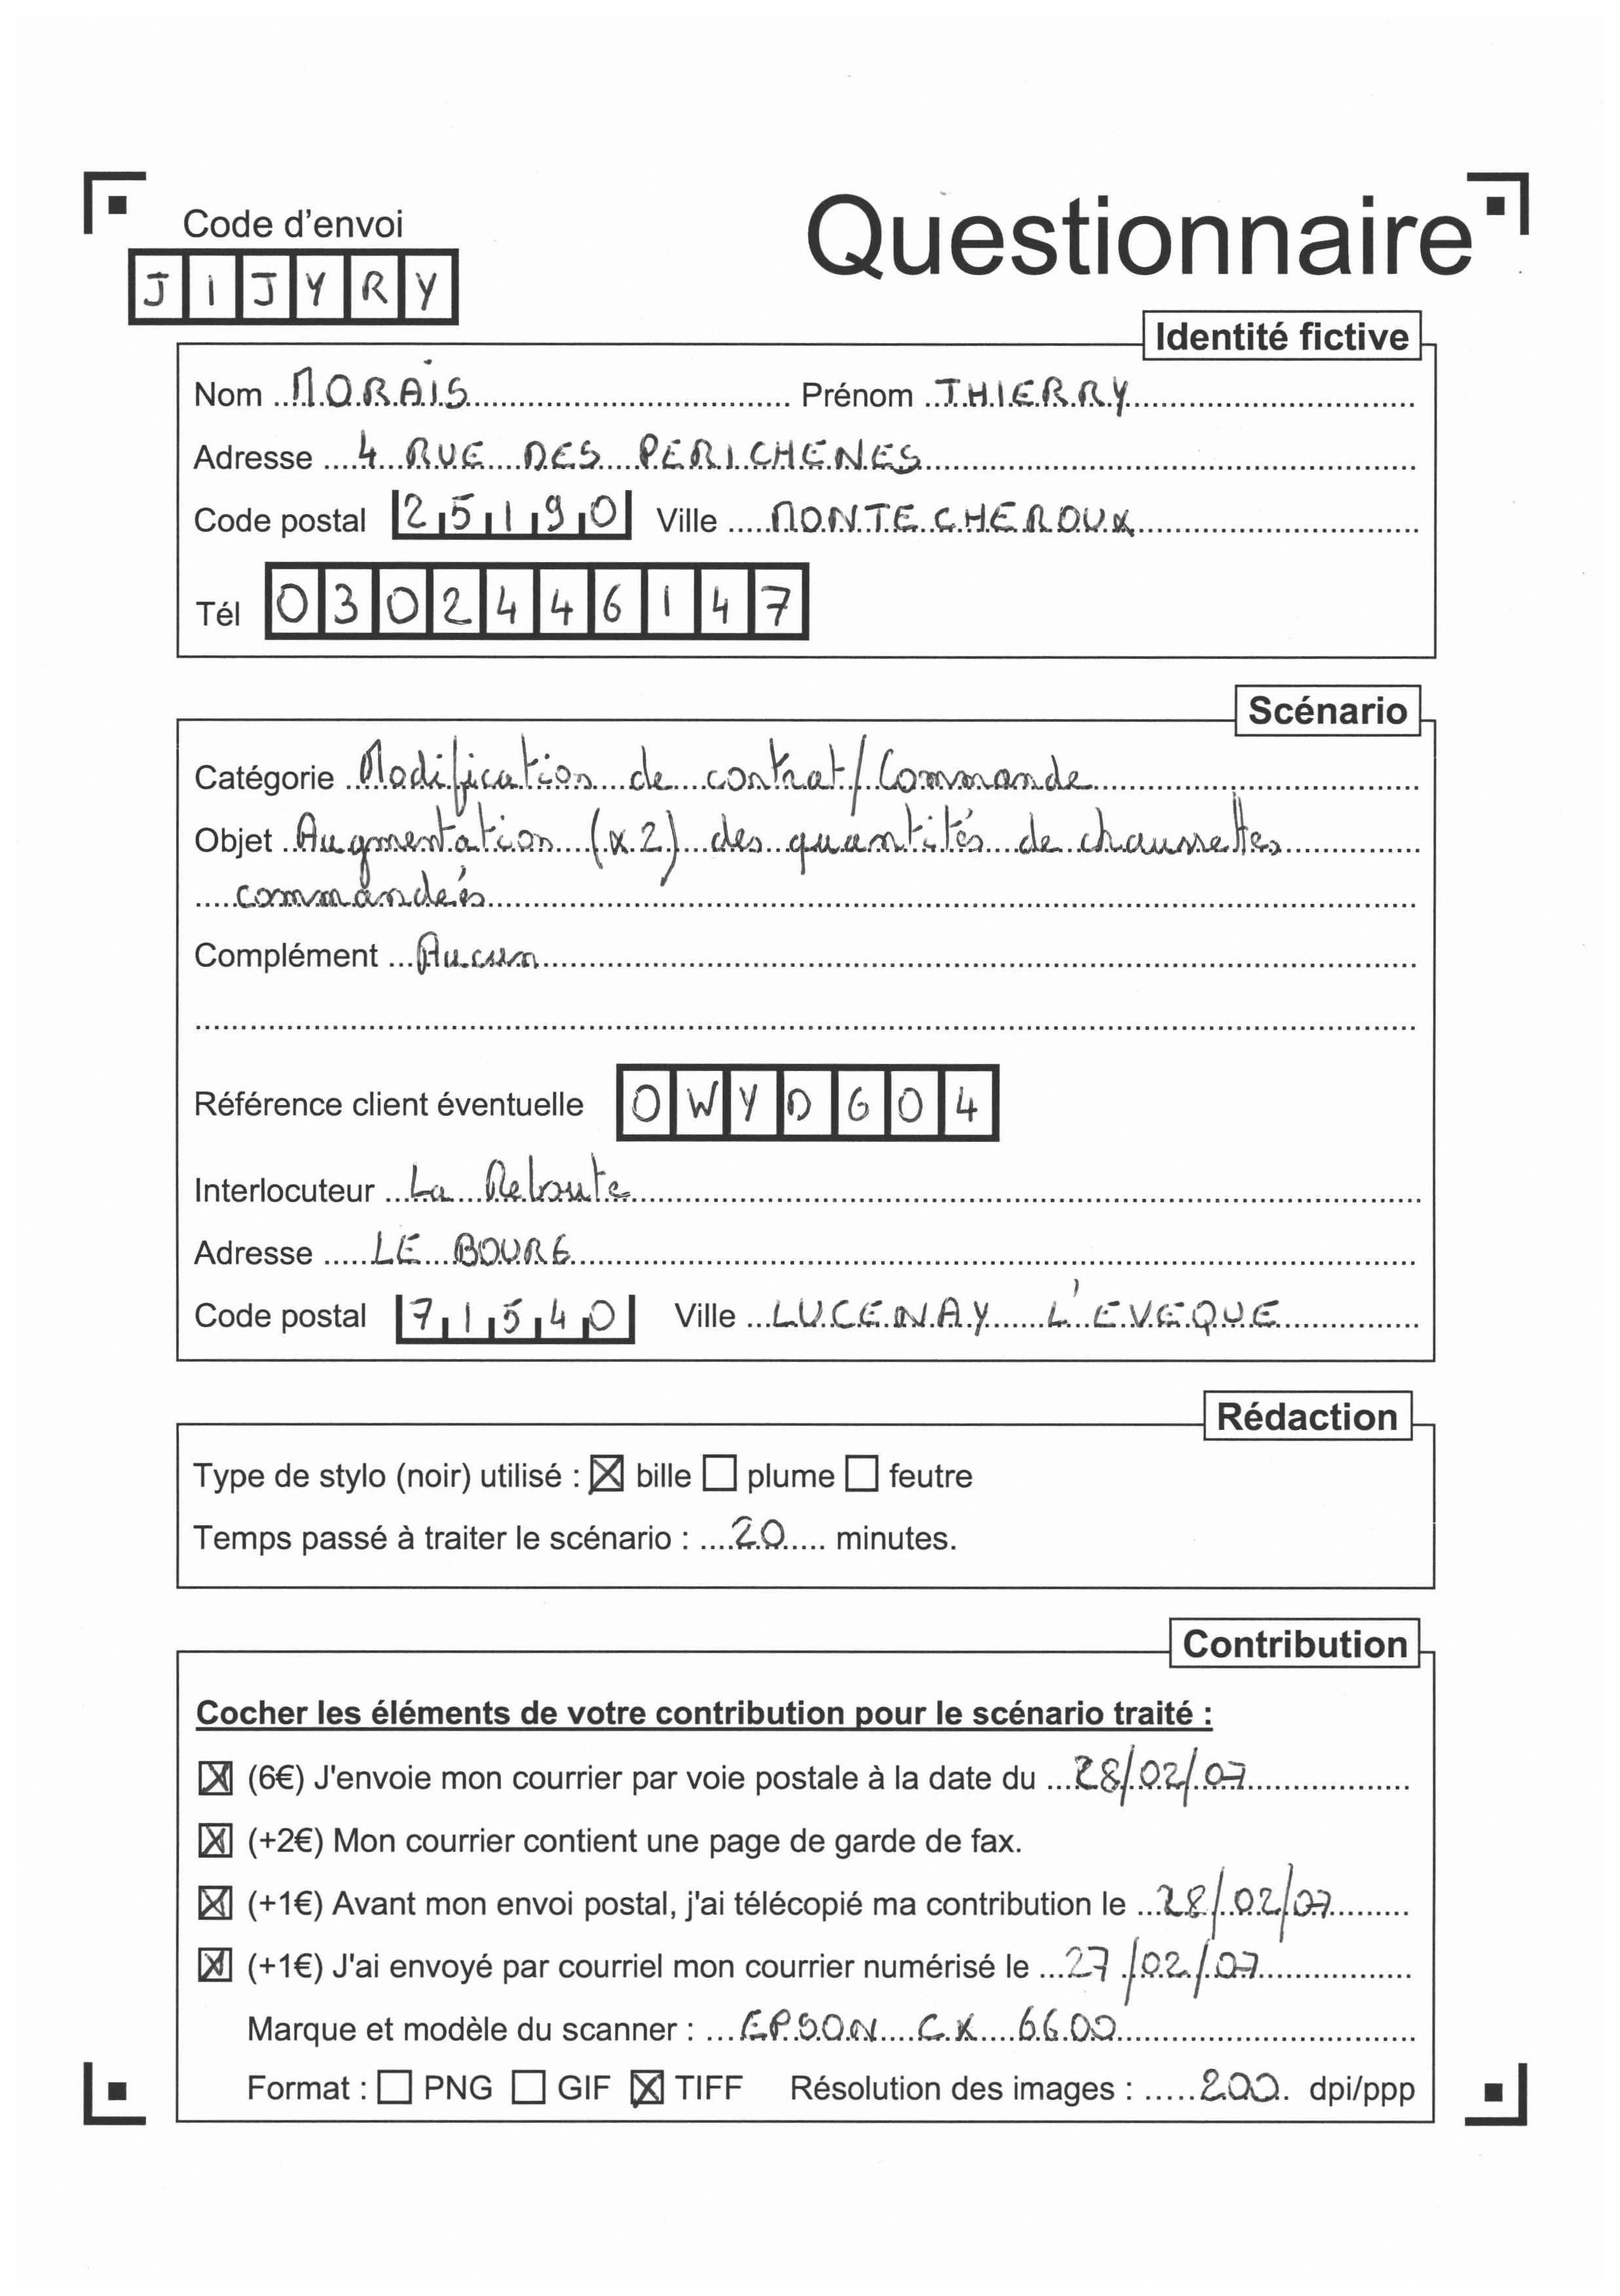 Code d'envoi
Questionnaire
JIJYRY
Identité fictive
Nom MORAIS Prénom THIERRY
Adresse 4 RUE DES PERICHENES
Code postal 25190 Ville MONTECHEROUX
Tél 0302446147
Scénario
Catégorie Modification de contrat/Commande
Objet Augmentation (x2) des quantités de chaussettes
commandées
Complément Aucun
Référence client éventuelle OWYDG04
Interlocuteur La Reboute
Adresse LE BOURG
Code postal 71540 Ville LUCENAY L'EVEQUE
Rédaction
Type de stylo (noir) utilisé : ☒ bille ☐ plume ☐ feutre
Temps passé à traiter le scénario : 20 minutes.
Contribution
Cocher les éléments de votre contribution pour le scénario traité :
☒ (6€) J'envoie mon courrier par voie postale à la date du 28/02/07
☒ (+2€) Mon courrier contient une page de garde de fax.
☒ (+1€) Avant mon envoi postal, j'ai télécopié ma contribution le 28/02/07
☒ (+1€) J'ai envoyé par courriel mon courrier numérisé le 27/02/07
Marque et modèle du scanner : EPSON CX 6600
Format : ☐ PNG ☐ GIF ☒ TIFF Résolution des images : 200 dpi/ppp